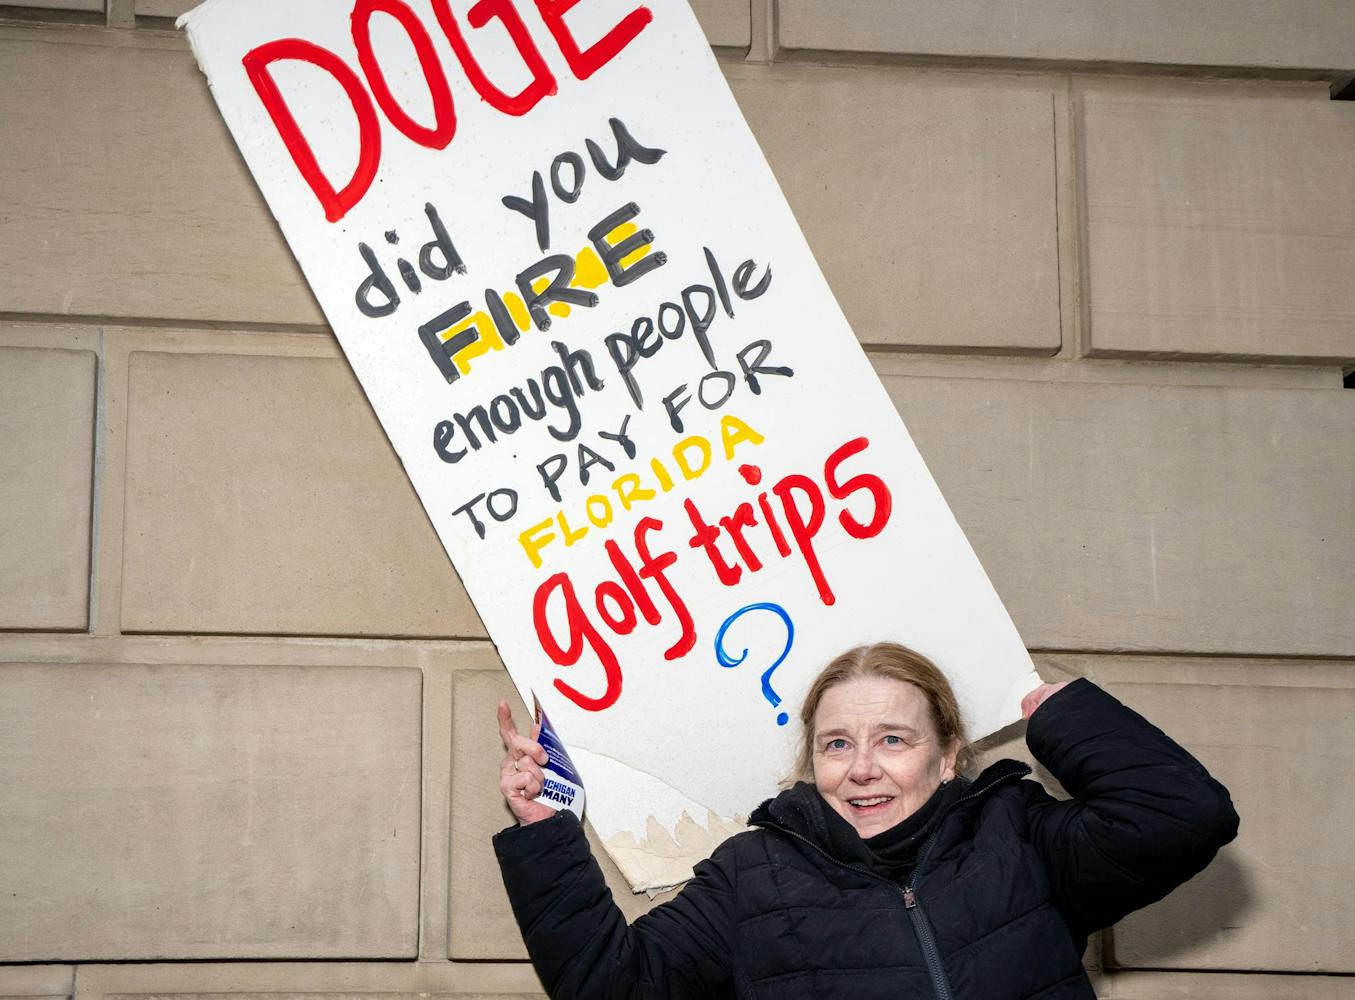 DOGE
did you
FIRE
enough people
TO PAY FOR
FLORIDA
golf trips
?
ICHIGAN
MANY